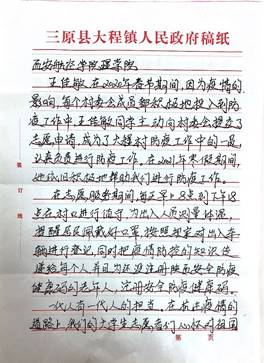 三原县大程镇人民政府稿纸
西安航空学院理学院
王佳敏,在2020年春节期间,因为疫情的
影响,每个村委会成员都积极地投入到防
疫工作中,王佳敏同学主动向村委会提交了
志愿申请,成为了大程村防疫工作中的一员,
认真负责进行防疫工作,在2021年寒假期间,
她依旧积极地帮助我们进行防疫工作。
在志愿服务期间,每天早上8点到下午8
点在村口进行值守,为出入人员测量体温,
提醒居民佩戴好口罩,按照规定对出入车
辆进行登记,同时把疫情防控的知识传
递给每个人,并且为还没注册陕西安全防疫
健康码的老年人,注册安全防疫健康码。
一代人有一代人的担当,在抗击疫情的
道路上,我们的大学生志愿者们心怀对祖国
装
订
线
第 页